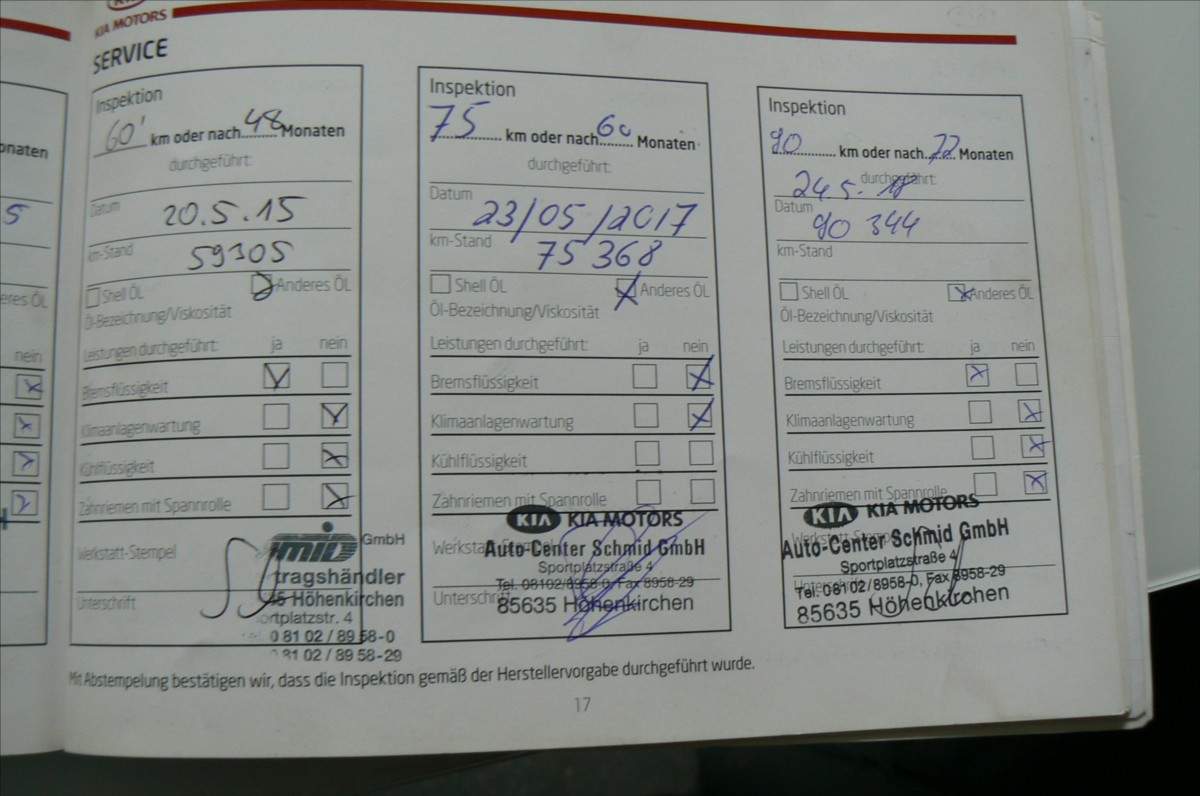 KIA MOTORS
SERVICE
onaten
5
eres ÖL
nein
Inspektion
60' km oder nach 48 Monaten
durchgeführt:
Datum 20.5.15
km-Stand 59305
Shell ÖL Anderes ÖL
Öl-Bezeichnung/Viskosität
Leistungen durchgeführt: ja nein
Bremsflüssigkeit
Klimaanlagenwartung
Kühlflüssigkeit
Zahnriemen mit Spannrolle
Werkstatt-Stempel
Unterschrift
mid GmbH
tragshändler
Höhenkirchen
ortplatzstr. 4
0 81 02 / 89 58-0
81 02 / 89 58-29
Inspektion
75 km oder nach 60 Monaten
durchgeführt:
Datum 23/05/2017
km-Stand 75 368
Shell ÖL Anderes ÖL
Öl-Bezeichnung/Viskosität
Leistungen durchgeführt: ja nein
Bremsflüssigkeit
Klimaanlagenwartung
Kühlflüssigkeit
Zahnriemen mit Spannrolle
KIA KIA MOTORS
Auto-Center Schmid GmbH
Sportplatzstraße 4
Tel. 08102/8958-0, Fax 8958-29
Unterschrift
85635 Höhenkirchen
Inspektion
90 km oder nach 72 Monaten
durchgeführt:
24.5.
Datum
90 344
km-Stand
Shell ÖL Anderes ÖL
Öl-Bezeichnung/Viskosität
Leistungen durchgeführt: ja nein
Bremsflüssigkeit
Klimaanlagenwartung
Kühlflüssigkeit
Zahnriemen mit Spannrolle
KIA KIA MOTORS
Auto-Center Schmid GmbH
Sportplatzstraße 4
Tel. 08102/8958-0, Fax 8958-29
85635 Höhenkirchen
Mit Abstempelung bestätigen wir, dass die Inspektion gemäß der Herstellervorgabe durchgeführt wurde.
17